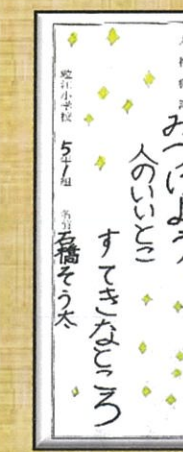 みつけよう
人のいいとこ
すてきなところ
小学校 5年1組 名前 石橋そう太